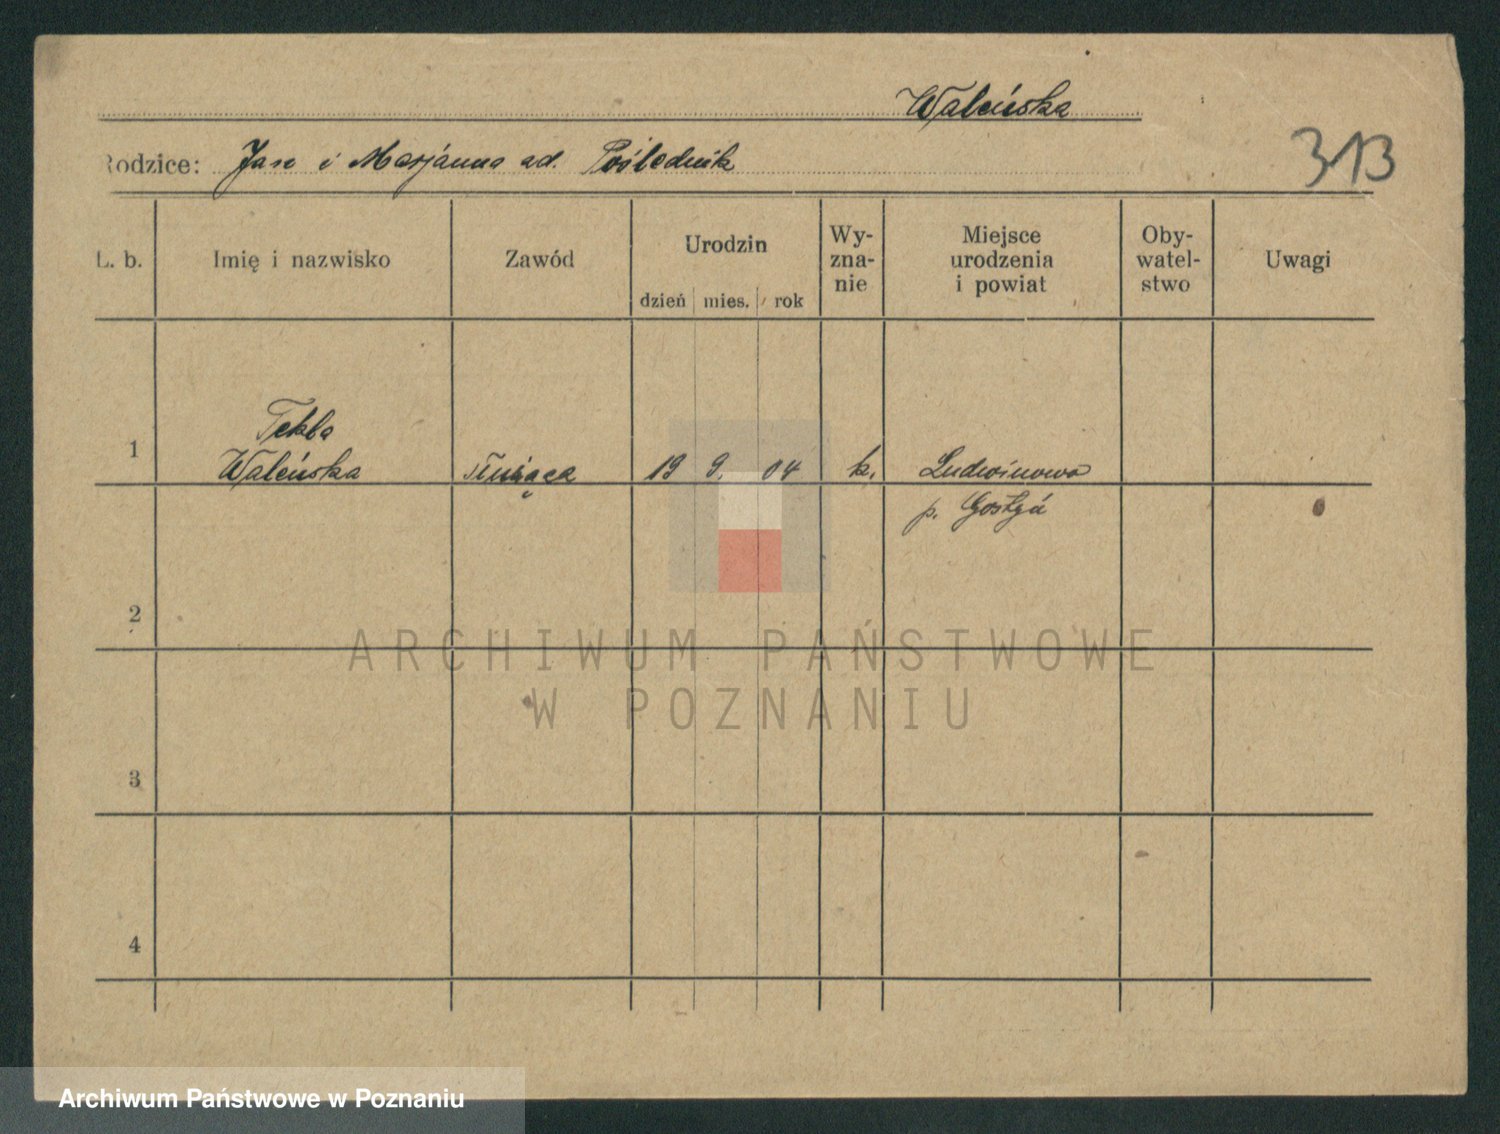 Waleńska
Rodzice: Jan i Marjanna od. Poślednik
313
L. b.
Imię i nazwisko
Zawód
Urodzin
dzień mies. rok
Wy-
zna-
nie
Miejsce
urodzenia
i powiat
Oby-
watel-
stwo
Uwagi
1
Tekla
Waleńska
służąca
19 9. 04
k.
Ludwinowo
p. Gostyń
2
3
4
ARCHIWUM PAŃSTWOWE
W POZNANIU
Archiwum Państwowe w Poznaniu